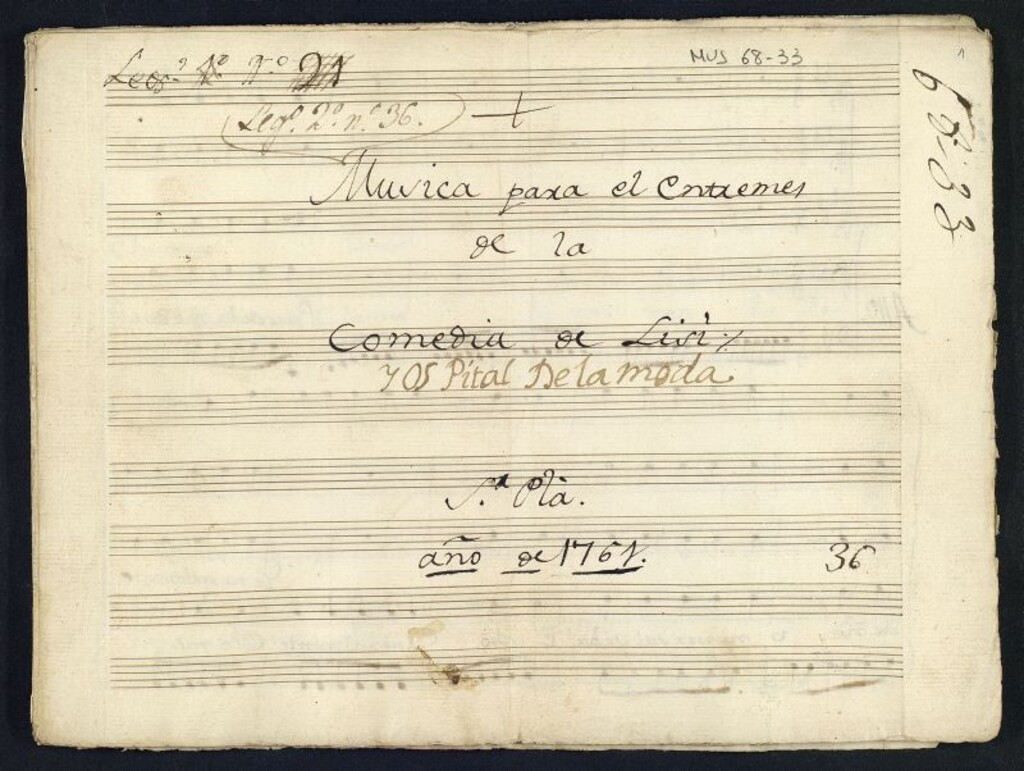 Leg.º 1º N.º 21
MUS 68-33
1
Leg.º 2º n.º 36.
68-33
Musica para el Entremes
de la
Comedia de Lisi
y OSPital De la moda
S.ª Pla.
año de 1761.
36